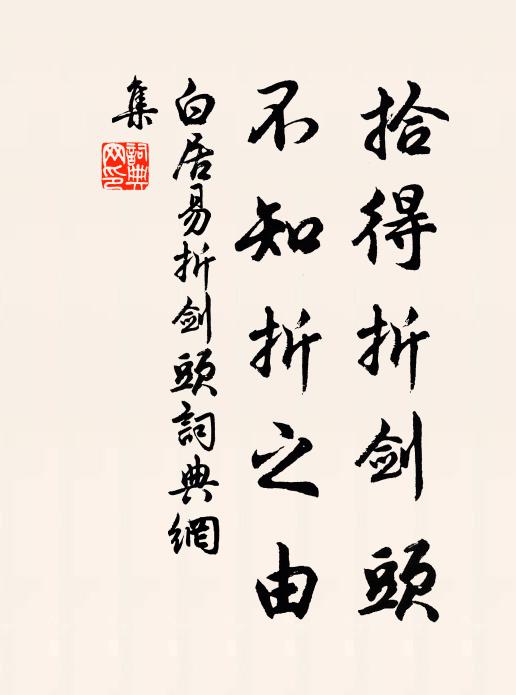 拾得折剑頭
不知折之由
白居易折剑頭詞典網
集
詞典
网印